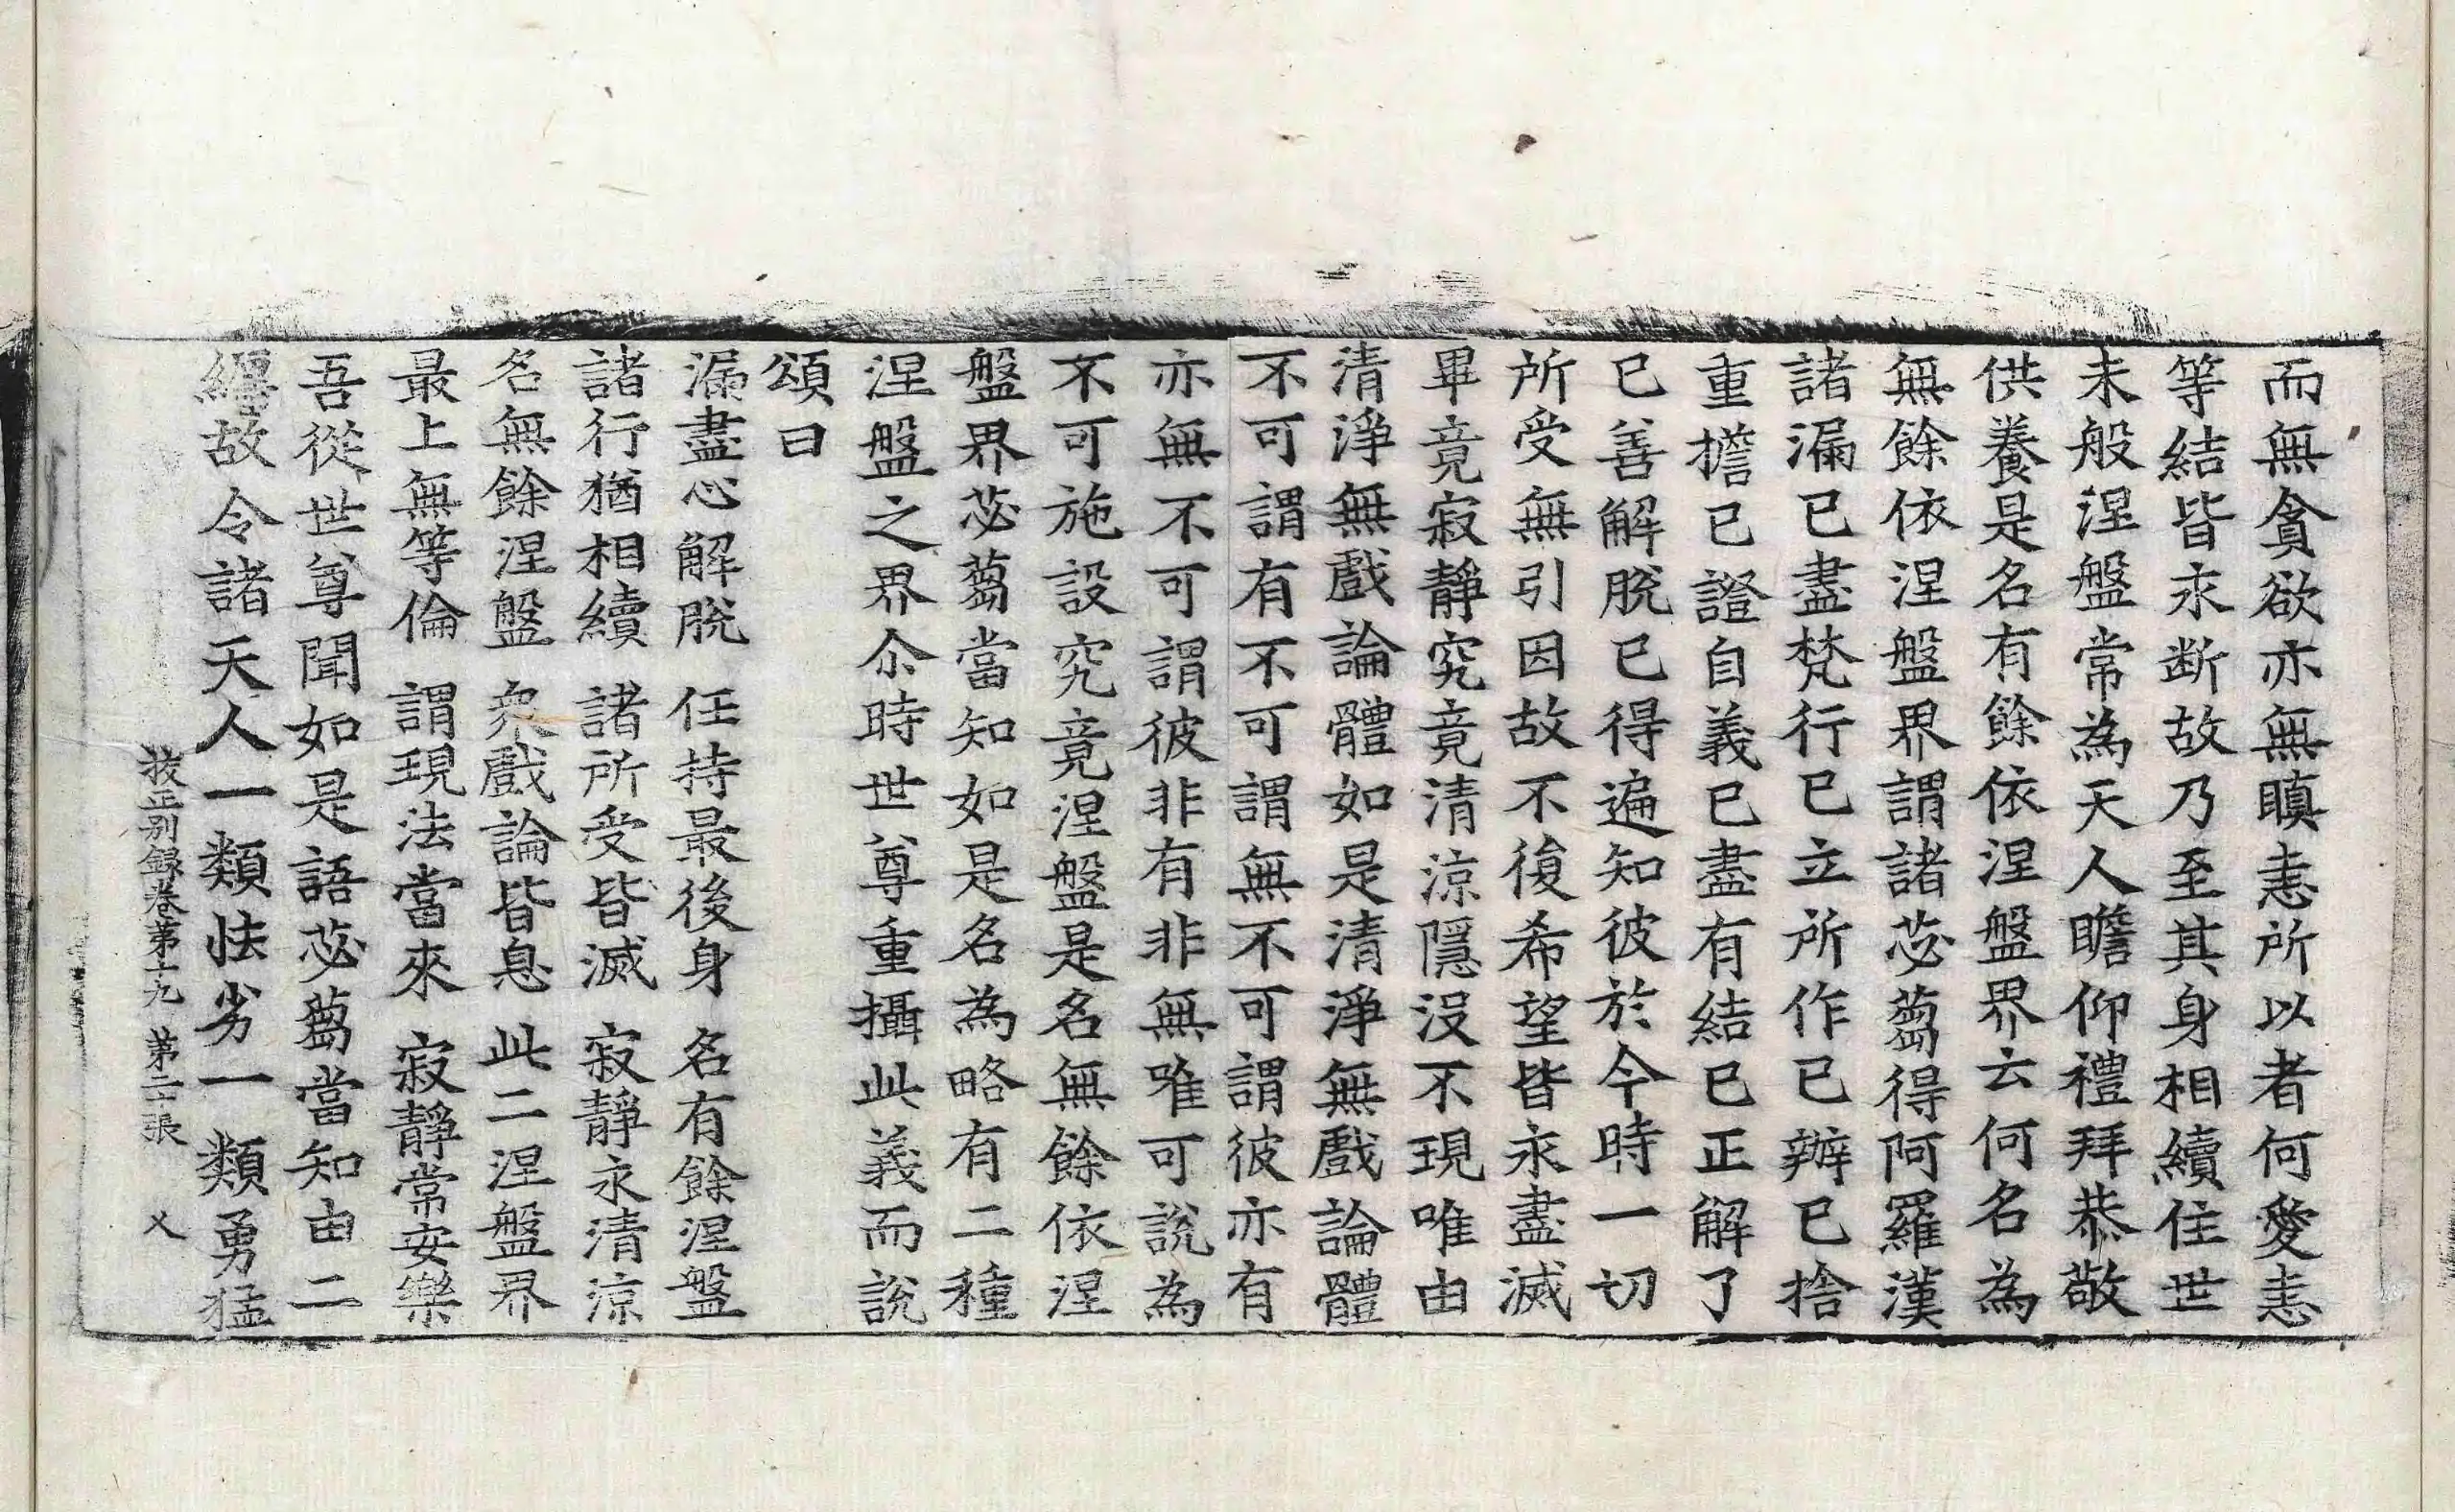 而無貪欲亦無瞋恚所以者何愛恚
等結皆永断故乃至其身相續住世
未般涅盤常為天人瞻仰禮拜恭敬
供養是名有餘依涅盤界云何名為
無餘依涅盤界謂諸苾蒭得阿羅漢
諸漏已盡梵行已立所作已辦已捨
重擔已證自義已盡有結已正解了
已善解脫已得遍知彼於今時一切
所受無引因故不復希望皆永盡滅
畢竟寂靜究竟清涼隱沒不現唯由
清淨無戲論體如是清淨無戲論體
不可謂有不可謂無不可謂彼亦有
亦無不可謂彼非有非無唯可說為
不可施設究竟涅盤是名無餘依涅
盤界苾蒭當知如是名為略有二種
涅盤之界尒時世尊重攝此義而說
頌曰
漏盡心解脫 任持最後身 名有餘涅盤
諸行猶相續 諸所受皆滅 寂靜永清涼
名無餘涅盤 衆戲論皆息 此二涅盤界
最上無等倫 謂現法當來 寂靜常安樂
吾從世尊聞如是語苾蒭當知由二
纏故令諸天人一類怯劣一類勇猛
挍正别録卷苐十九 苐二十張 乂